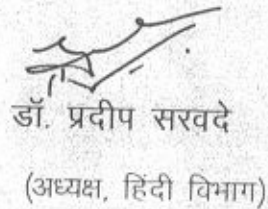 डॉ. प्रदीप सरवदे
(अध्यक्ष, हिंदी विभाग)